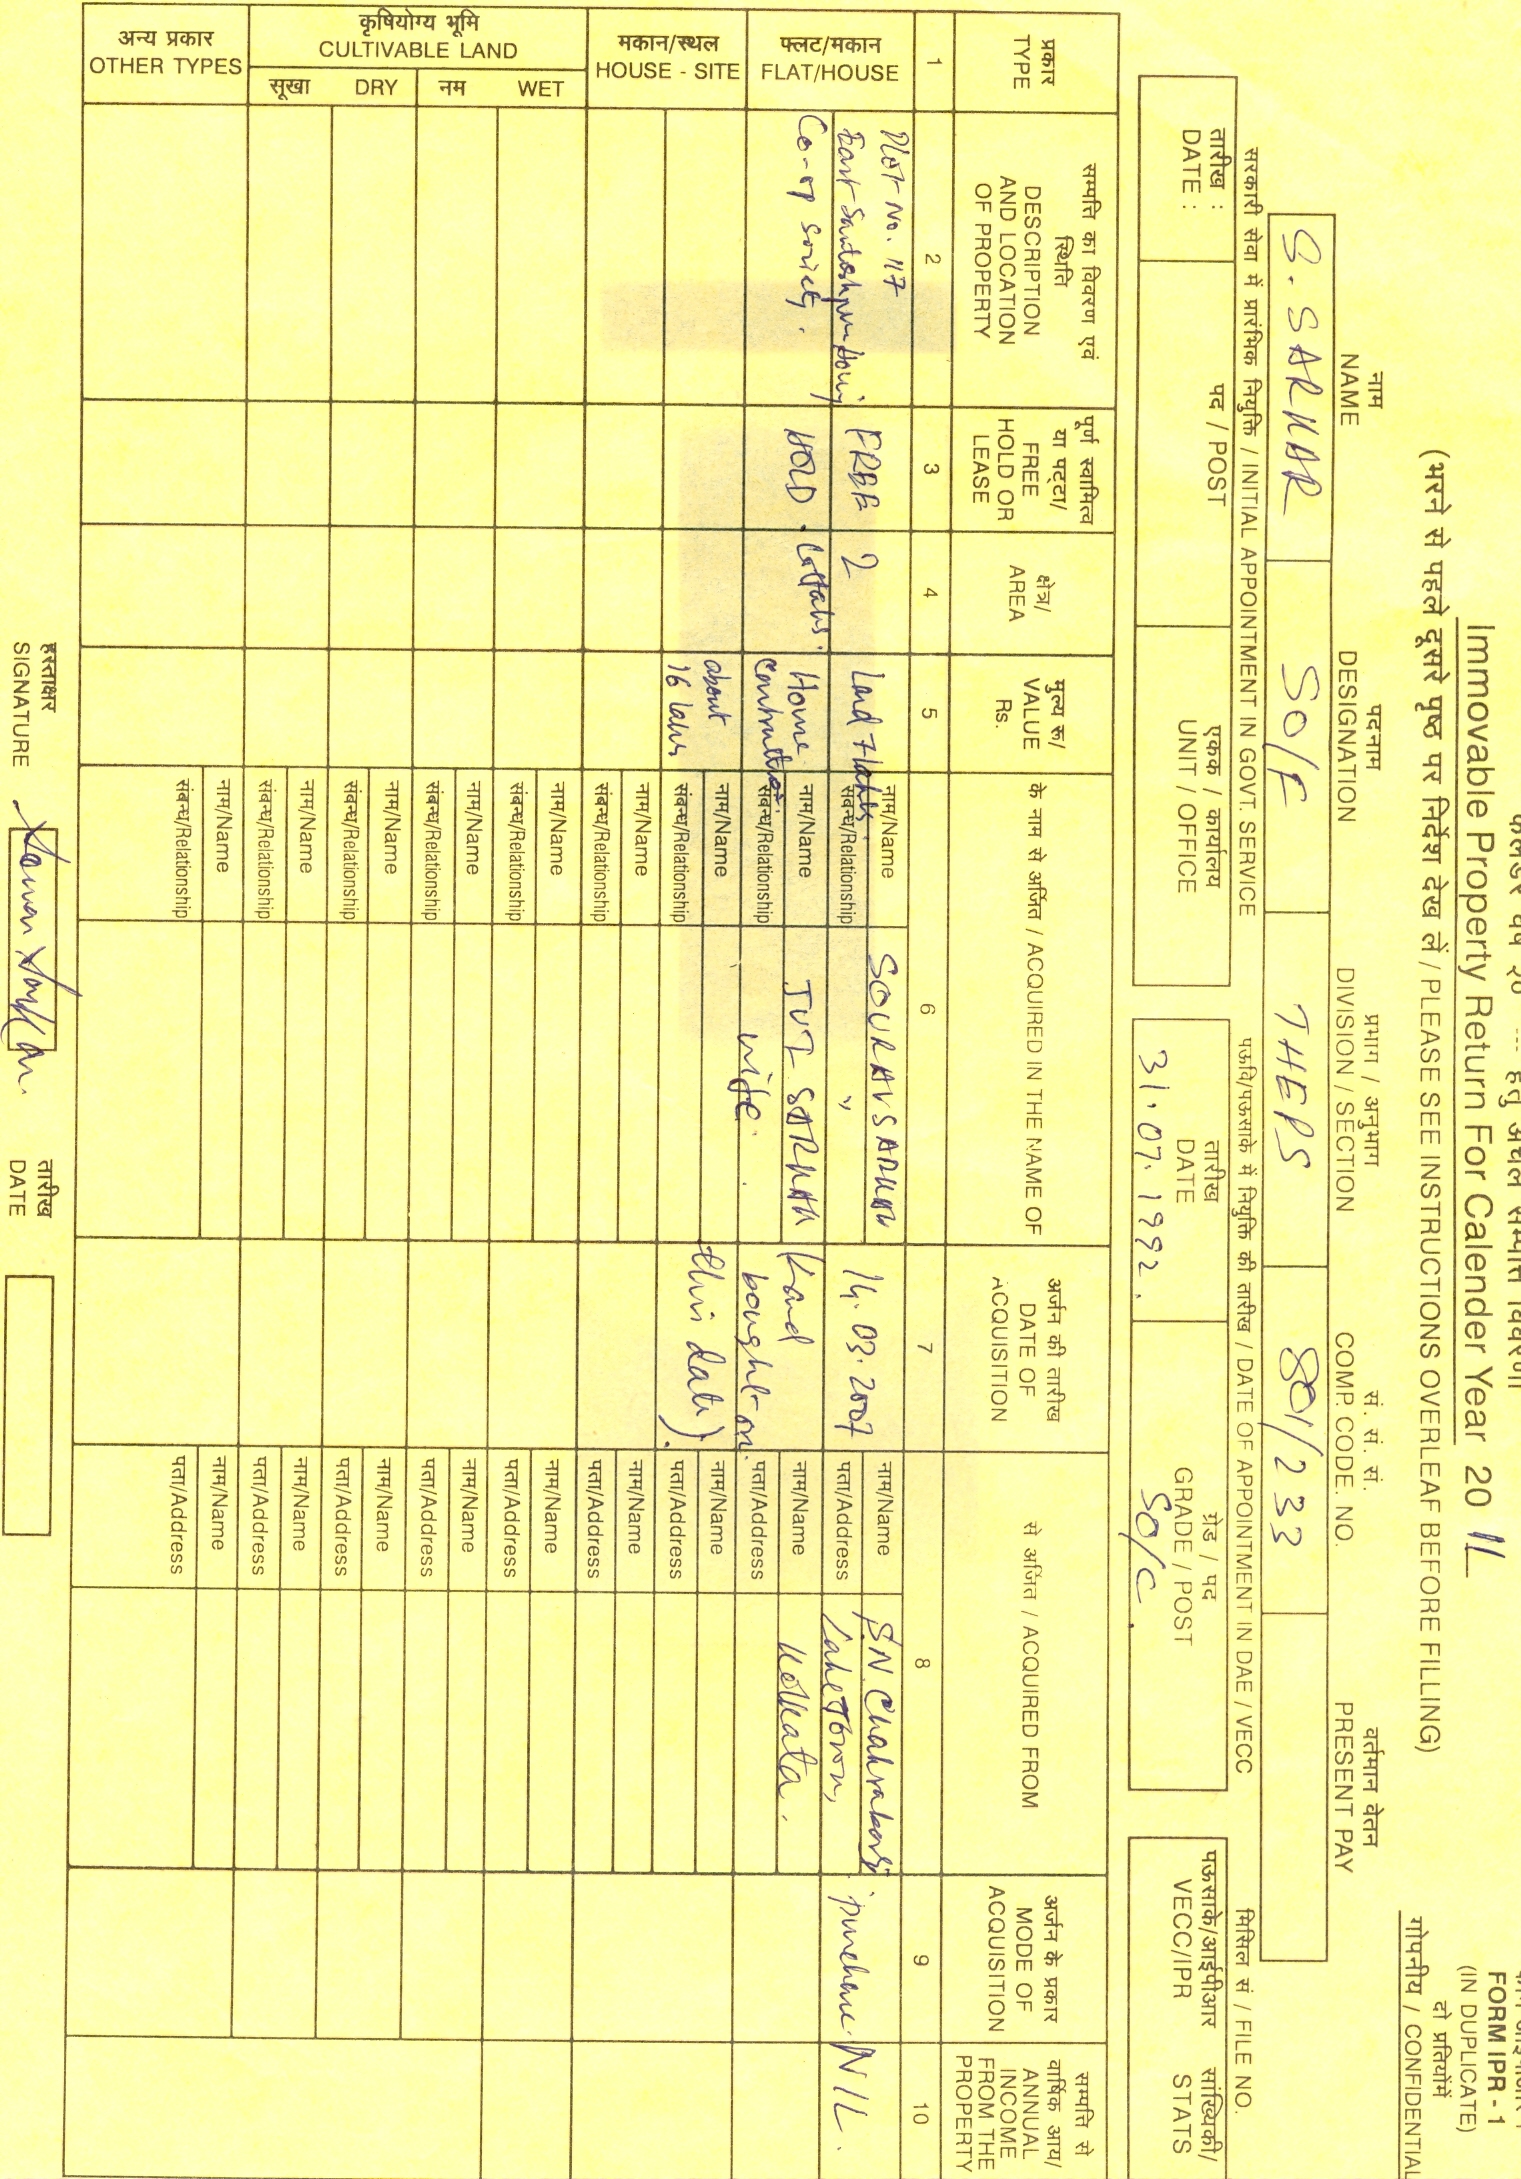 Immovable Property Return For Calender Year 20 11
(भरने से पहले दूसरे पृष्ठ पर निर्देश देख लें / PLEASE SEE INSTRUCTIONS OVERLEAF BEFORE FILLING)
FORM IPR - 1
(IN DUPLICATE)
दो प्रतियोंमें
गोपनीय / CONFIDENTIAL
नाम
NAME
पदनाम
DESIGNATION
प्रभाग / अनुभाग
DIVISION / SECTION
सं. सं. सं.
COMP. CODE. NO.
वर्तमान वेतन
PRESENT PAY
S. SARKAR
SO/F
THEPS
801/233
सरकारी सेवा में प्रारंभिक नियुक्ति / INITIAL APPOINTMENT IN GOVT. SERVICE
पऊवि/पऊसाके में नियुक्ति की तारीख / DATE OF APPOINTMENT IN DAE / VECC
मिसिल सं / FILE NO.
तारीख :
DATE :
पद / POST
एकक / कार्यालय
UNIT / OFFICE
तारीख
DATE
31.07.1992.
ग्रेड / पद
GRADE / POST
SO/C.
पऊसाके/आईपीआर
VECC/IPR
सांख्यिकी/
STATS
प्रकार
TYPE
सम्पत्ति का विवरण एवं
स्थिति
DESCRIPTION
AND LOCATION
OF PROPERTY
पूर्ण स्वामित्व
या पट्टा/
FREE
HOLD OR
LEASE
क्षेत्र/
AREA
मूल्य रू/
VALUE
Rs.
के नाम से अर्जित / ACQUIRED IN THE NAME OF
अर्जन की तारीख
DATE OF
ACQUISITION
से अर्जित / ACQUIRED FROM
अर्जन के प्रकार
MODE OF
ACQUISITION
सम्पत्ति से
वार्षिक आय/
ANNUAL
INCOME
FROM THE
PROPERTY
1 2 3 4 5 6 7 8 9 10
फ्लट/मकान
FLAT/HOUSE
Plot No. 117
East Santoshpur
Co-op Society.
FREE
HOLD.
2
Cottahs.
Land 7 lakhs.
Home
Contruction
about
16 lakhs
नाम/Name SOURAV SARKAR
संबन्ध/Relationship "
नाम/Name JUI SARKAR
संबन्ध/Relationship wife.
नाम/Name
संबन्ध/Relationship
14.03.2007
Land
bought on
this date).
नाम/Name S.N. Chakraborty
पता/Address Lake Town,
नाम/Name Kolkata.
पता/Address
नाम/Name
पता/Address
purchase.
NIL.
मकान/स्थल
HOUSE - SITE
नाम/Name
संबन्ध/Relationship
नाम/Name
पता/Address
कृषियोग्य भूमि
CULTIVABLE LAND
नम WET
नाम/Name
संबन्ध/Relationship
नाम/Name
पता/Address
नाम/Name
संबन्ध/Relationship
नाम/Name
पता/Address
सूखा DRY
नाम/Name
संबन्ध/Relationship
नाम/Name
पता/Address
नाम/Name
संबन्ध/Relationship
नाम/Name
पता/Address
अन्य प्रकार
OTHER TYPES
नाम/Name
संबन्ध/Relationship
नाम/Name
पता/Address
हस्ताक्षर
SIGNATURE
तारीख
DATE